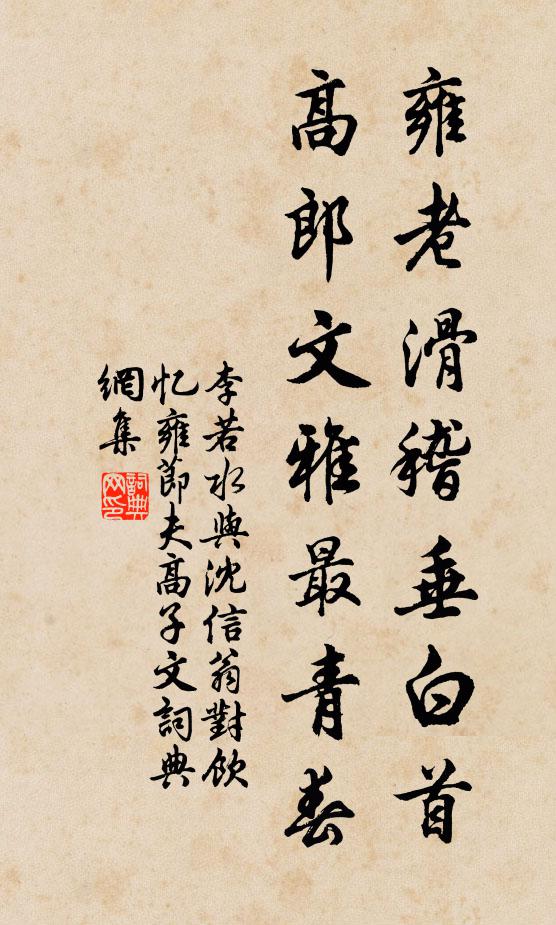 雍老滑稽垂白首
高郎文雅最青春
李若水與沈信翁對飲
忆雍節夫高子文詞典
網集
詞典網印